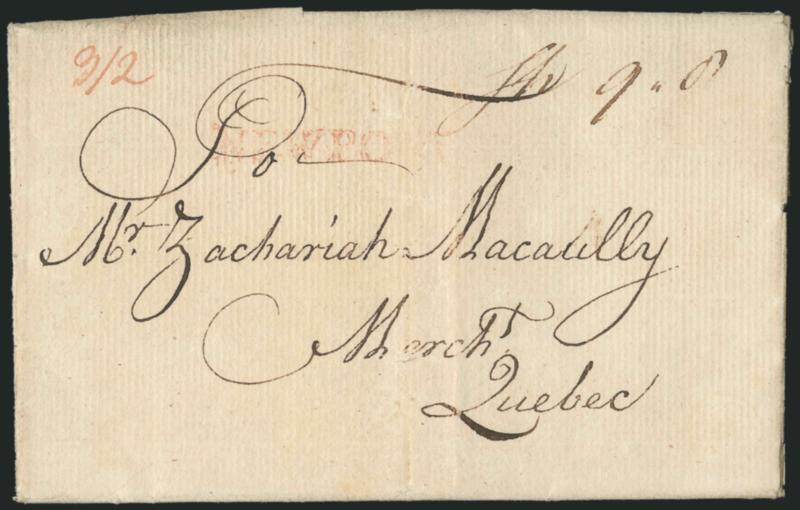 3/2
9 " 8
NEWPO
To
Mr. Zachariah Macaully
Mercht
Quebec